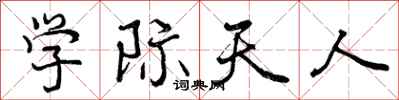 学际天人
词典网